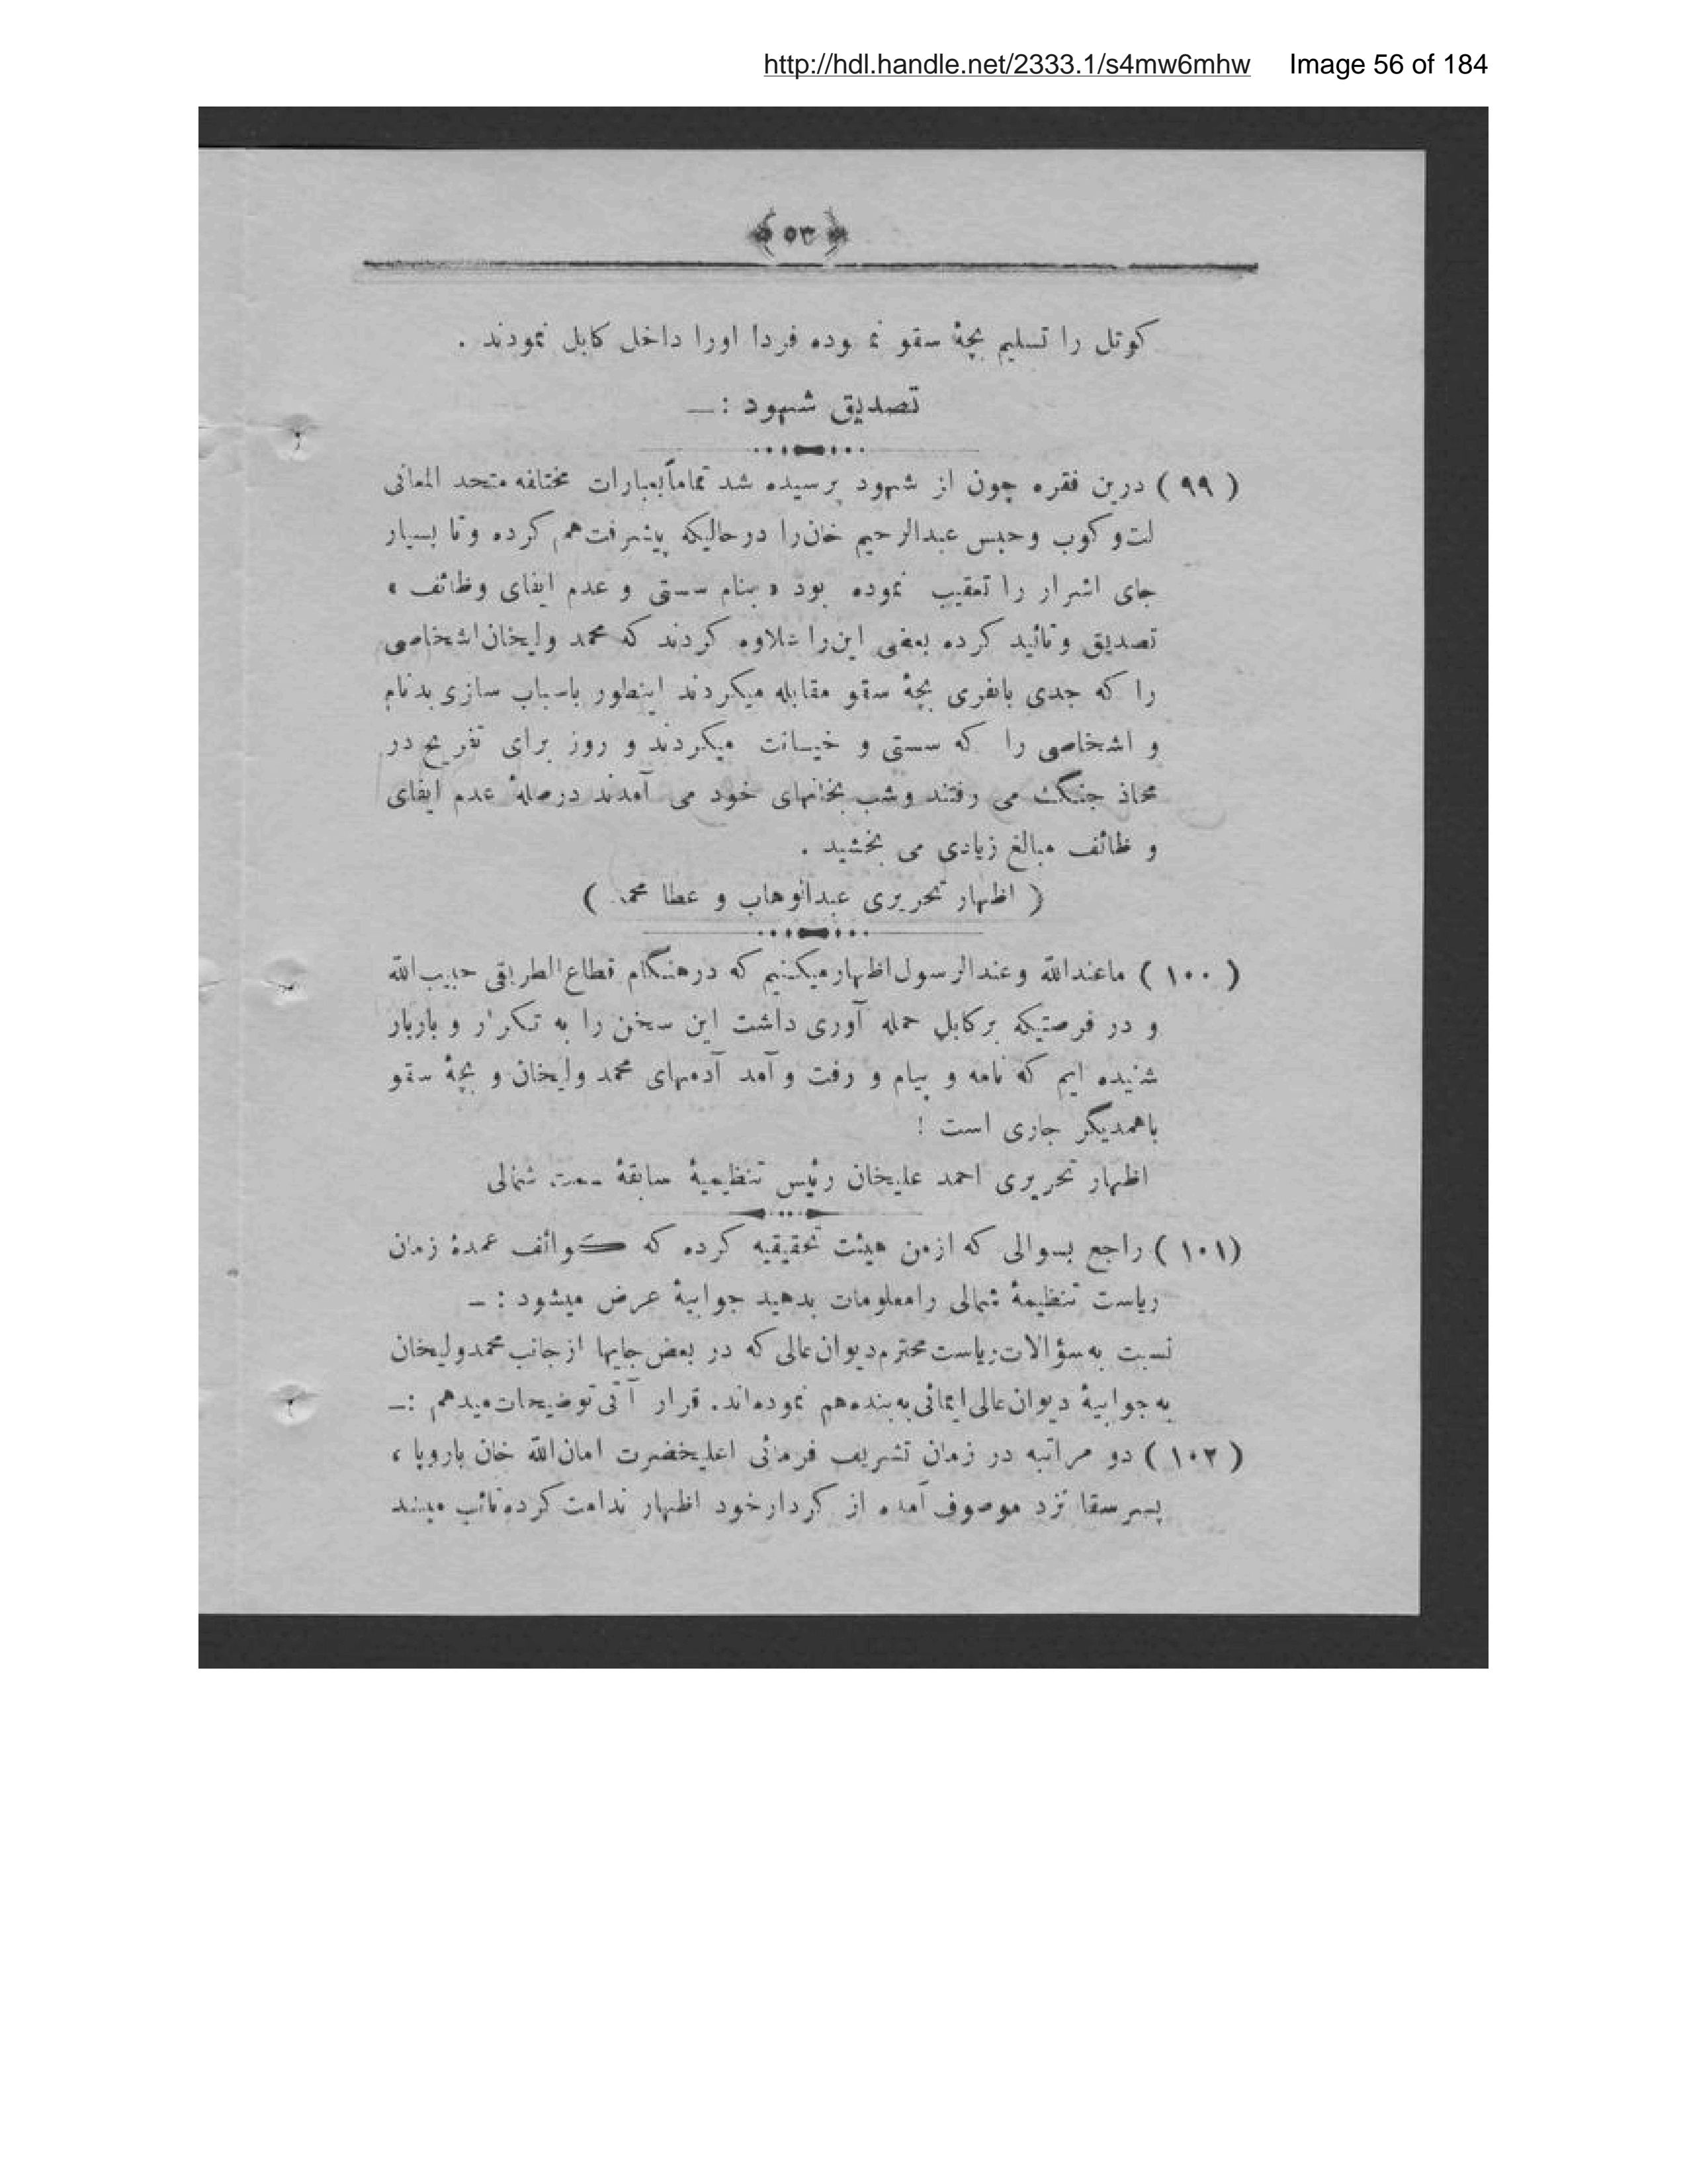 http://hdl.handle.net/2333.1/s4mw6mhw Image 56 of 184
﴿ ۵۳ ﴾
کوتل را تسلیم بچهٔ سقو نموده فردا اورا داخل کابل نمودند .
تصدیق شهود : ــ
( ۹۹ ) درین فقره چون از شهود پرسیده شد تماماً بعبارات مختلفه متحد المعانی
لت و کوب و حبس عبدالرحیم خان را در حالیکه پیشرفت هم کرده و تا بسیار
جای اشرار را تعقیب نموده بود « بنام سستی و عدم ایفای وظائف »
تصدیق و تائید کرده بعضی این را علاوه کردند که محمد ولیخان اشخاصی
را که جدی بانفری بچهٔ سقو مقابله میکردند اینطور باسباب سازی بدنام
و اشخاصی را که سستی و خیانت میکردند و روز برای تفریح در
محاذ جنگ می رفتند و شب بخانهای خود می آمدند درصلهٔ عدم ایفای
و ظائف مبالغ زیادی می بخشید .
( اظهار تحریری عبدالوهاب و عطا محمد )
( ۱۰۰ ) ما عندالله و عندالرسول اظهار میکنیم که در هنگام قطاع الطریقی حبیب الله
و در فرصتیکه بر کابل حمله آوری داشت این سخن را به تکرار و باربار
شنیده ایم که نامه و پیام و رفت و آمد آدمهای محمد ولیخان و بچهٔ سقو
باهمدیگر جاری است !
اظهار تحریری احمد علیخان رئیس تنظیمیهٔ سابقهٔ سمت شمالی
( ۱۰۱ ) راجع بسوالی که ازمن هیئت تحقیقیه کرده که کوائف عمدهٔ زمان
ریاست تنظیمهٔ شمالی را معلومات بدهید جوابیهٔ عرض میشود : ــ
نسبت به سؤالات ریاست محترم دیوان عالی که در بعض جایها از جانب محمد ولیخان
به جوابیهٔ دیوان عالی ایمائی به بنده هم نموده اند. قرار آتی توضیحات میدهم :ــ
( ۱۰۲ ) دو مراتبه در زمان تشریف فرمائی اعلیحضرت امان الله خان باروپا ،
پسر سقا نزد موصوف آمده از کردار خود اظهار ندامت کرده تائب میشد